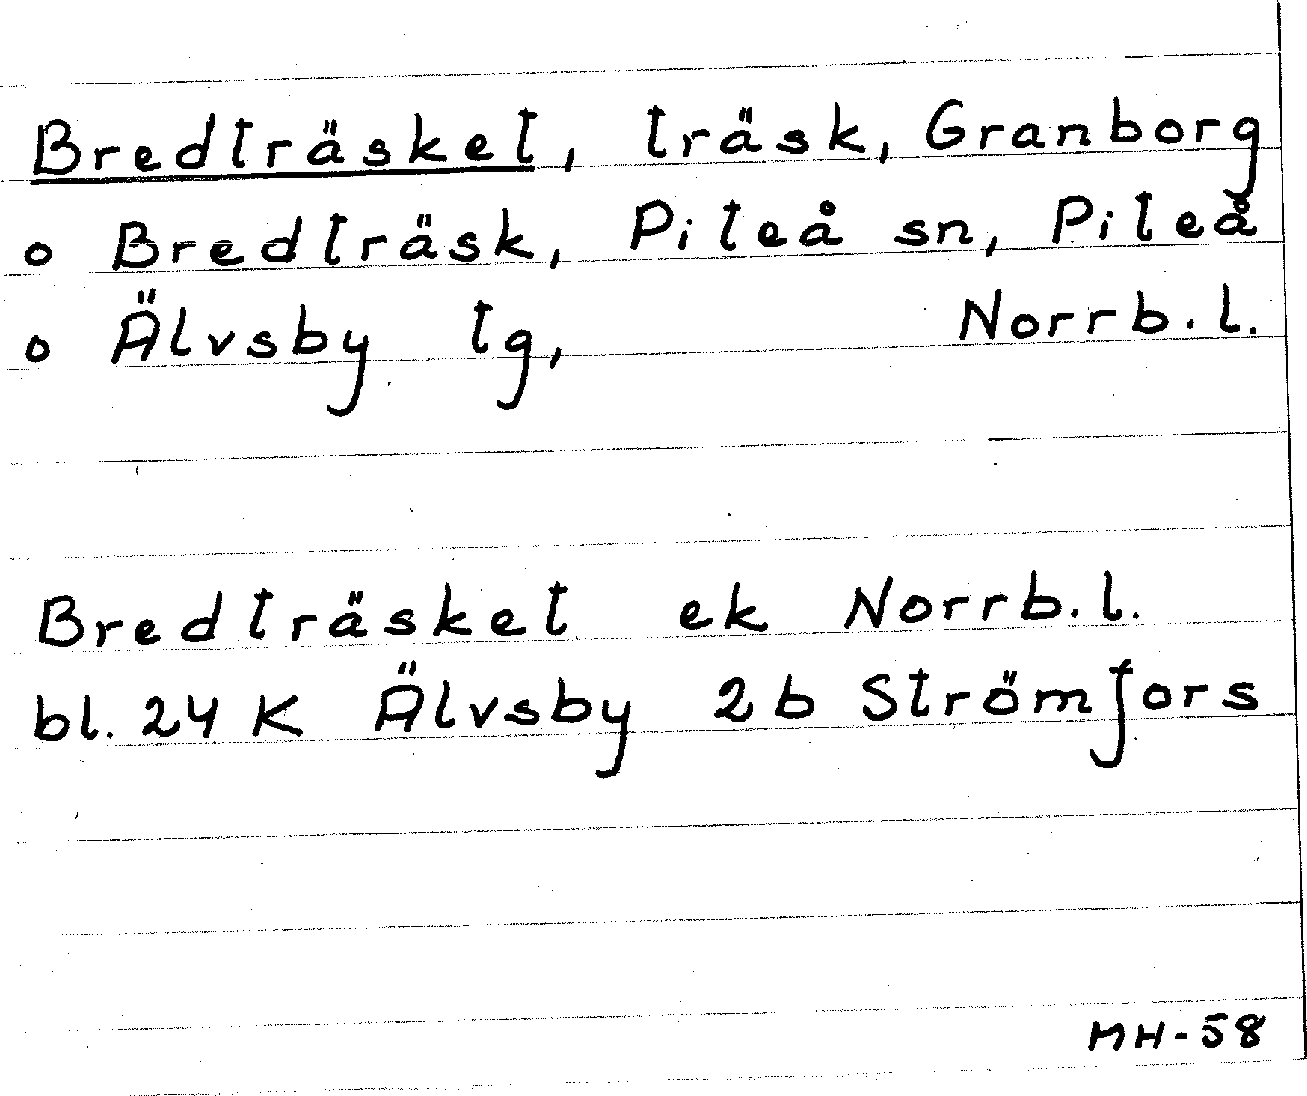 Bredträsket, träsk, Granborg
o Bredträsk, Piteå sn, Piteå
o Älvsby tg, Norrb.l.
Bredträsket ek Norrb.l.
bl. 24 K Älvsby 2b Strömfors
MH-58